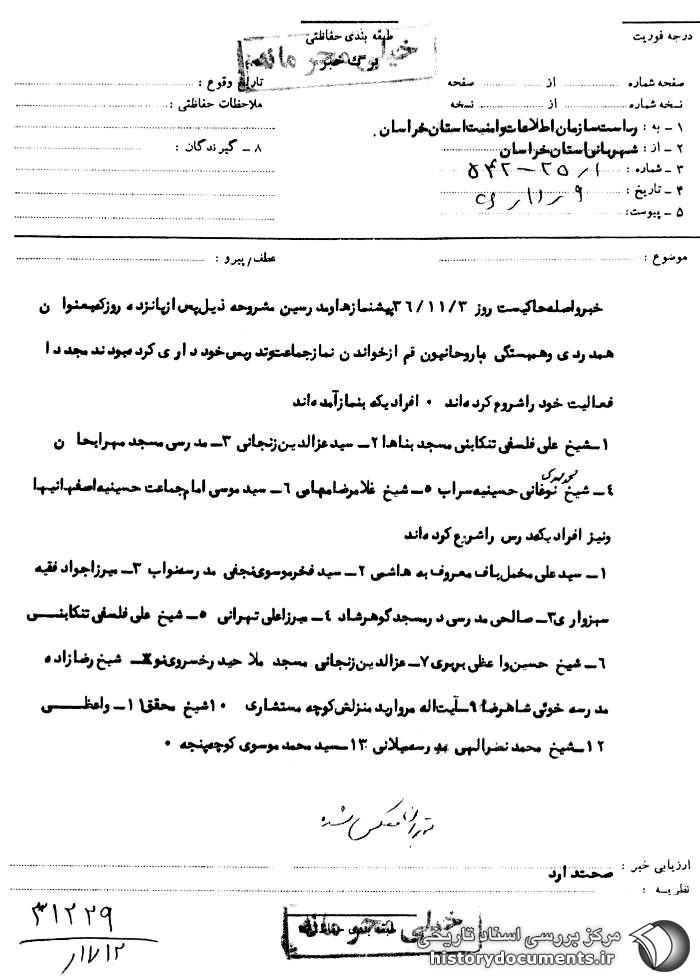 درجه فوریت
طبقه بندی حفاظتی
خیلی محرمانه
برگ خبر
صفحه شماره از صفحه
تاریخ وقوع :
نسخه شماره از نسخه
ملاحظات حفاظتی :
۱ – به : ریاست سازمان اطلاعات و امنیت استان خراسان
۲ – از : شهربانی استان خراسان
۸ – گیرندگان :
۳ – شماره :
۴ – تاریخ :
۵ – پیوست:
موضوع :
عطف/پیرو :
خبرواصله حاکیست روز ۳۶/۱۱/۳ پیشنمازها و مدرسین مشروحه ذیل پس از پانزده روز که بعنوان
همدردی وهمبستگی باروحانیون قم ازخواندن نمازجماعت وتدریس خودداری کرده بودند مجددا
فعالیت خود راشروع کرده اند ۰ افرادیکه بنمازآمده اند
۱– شیخ علی فلسفی تنکابنی مسجد بناها ۲– سید عزالدین زنجانی ۳– مدرسی مسجد مهرابخان
محمد مهدی
۴– شیخ نوغانی حسینیه سراب ۵– شیخ غلامرضا مهامی ۶– سید موسی امام جماعت حسینیه اصفهانیها
ونیز افرادیکه درس راشروع کرده اند
۱– سید علی مخمل باف معروف به هاشمی ۲– سید فخر موسوی نجفی مدرسه نواب ۳– میرزاجواد فقیه
سبزواری ۳– صالحی مدرسی در مسجد گوهرشاد ۴– میرزاعلی تهرانی ۵– شیخ علی فلسفی تنکابنی
۶– شیخ حسین واعظی بربری ۷– عزالدین زنجانی مسجد ملاحیدر خسروی نو ۸– شیخ رضازاده
مدرسه خوئی شاهرضا ۹– آیت اله مروارید منزلش کوچه مستشاری ۱۰ شیخ محقق ۱۱– واعظی
۱۲– شیخ محمد نصرالهی مدرسه میلانی ۱۳– سید محمد موسوی کوچه پنجه ۰
منعکس شده
ارزیابی خبر : صحت دارد
نظریه :
۳۱۲۲۹
طبقه بندی حفاظتی
خیلی محرمانه
مرکز بررسی اسناد تاریخی
historydocuments.ir